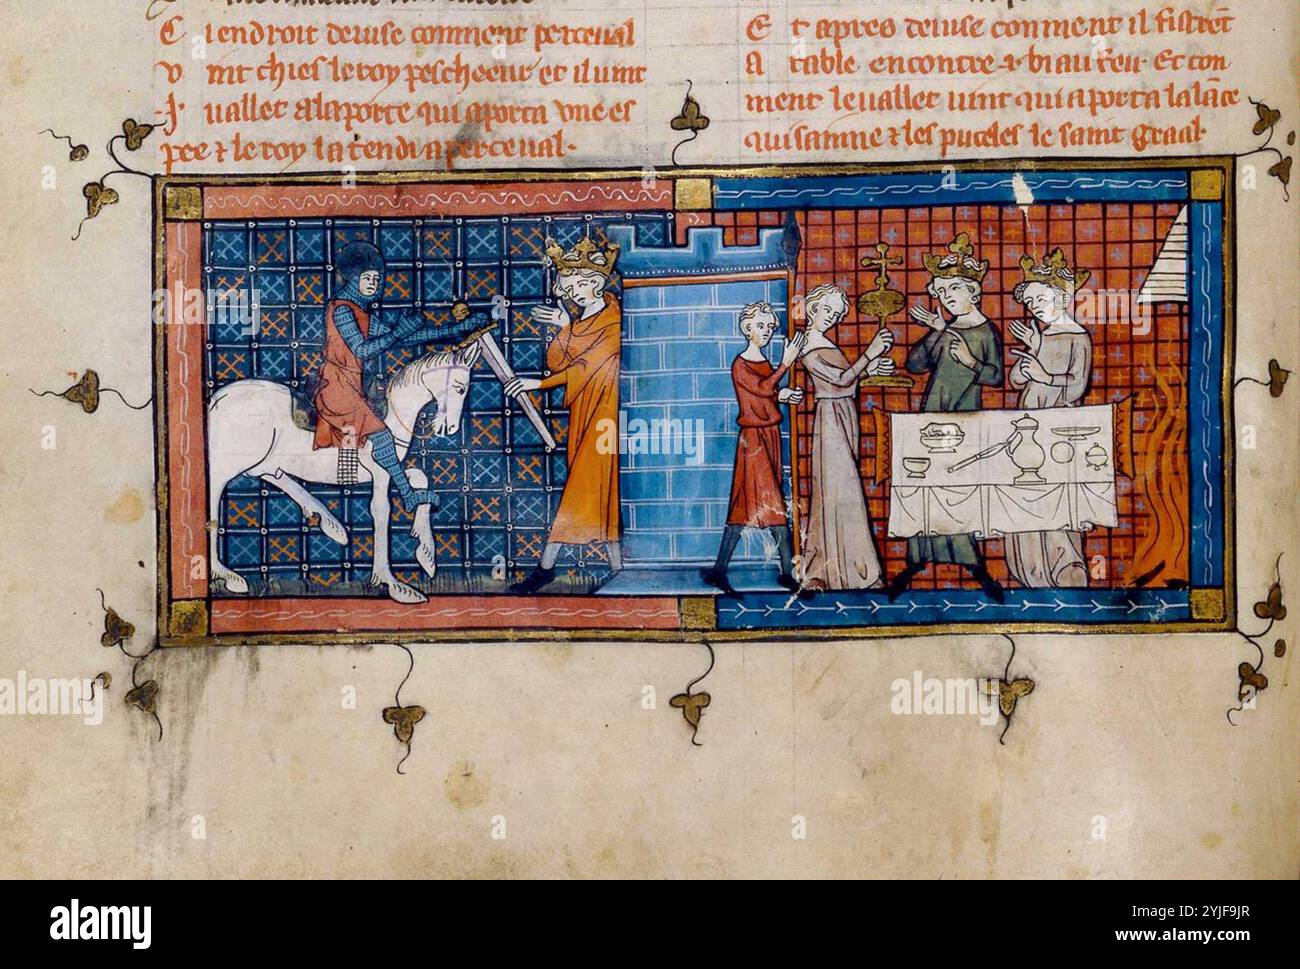 C iendroit deuise comment perceual
v int chies le roy pescheeur et il uint
.I. uallet a la porte qui aporta vne es
pee & le roy la tendi a perceual.
E t apres deuise comment il sistrent
A table encontre & biau feu. Et con
ment le uallet uint qui aporta la lāce
qui sainne & les puceles le saint graal.
alamy
Image ID: 2YJF9JR
www.alamy.com